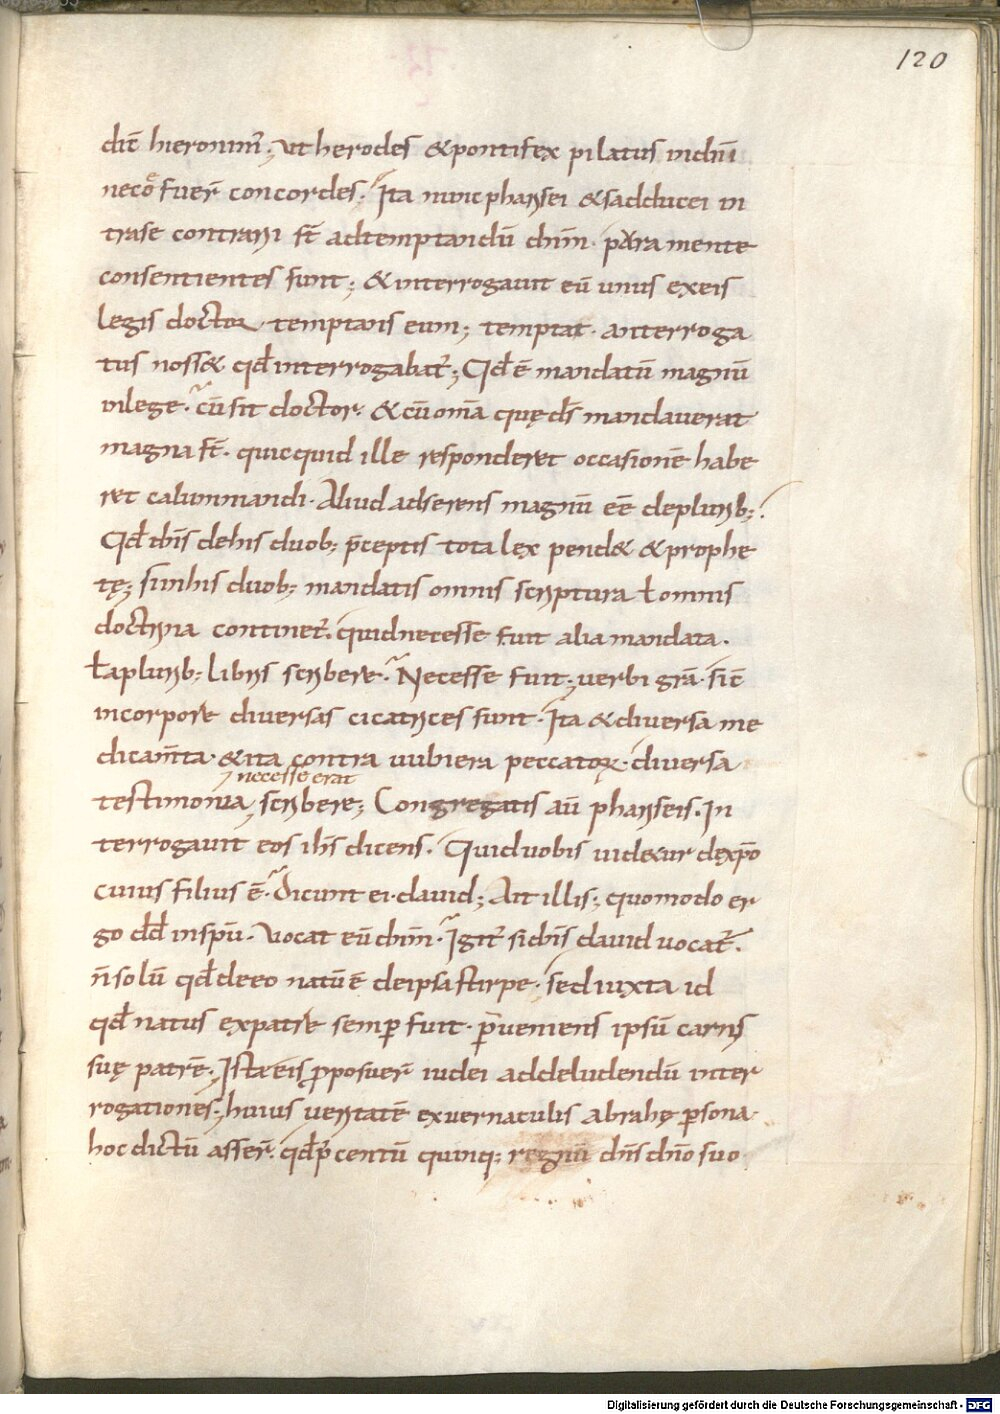 120
dic̄ hieronim̄; Ut herodes &pontifex pilatus indn̄i
necē fuer̄ concordes. Ita nunc pharisei &sadducei in
trase contrarii st̄ adtemptandū dn̄m. p&ara mente
consentientes sunt; &interrogauit eū unus exeis
legis doctor temptans eum; temptat. anterroga
tus noss& qd̄ interrogabat̄; Qd̄ ē mandatū magnū
inlege. cū sit doctor. &cū om̄a quę ds̄ mandauerat
magna st̄. quicquid ille responderet occasionē habe
ret calumniandi. Aliud adserens magnū eē deplurib;
Qd̄ ihs̄ dehis duob; p̄ceptis tota lex pend& &prophe
tę; si inhis duob; mandatis omnis scriptura ł omnis
doctrina continet̄. quid necesse fuit alia mandata.
ł aplurib; libris scribere. Necesse fuit; uerbi grā. sic̄
incorpore diuersas cicatrices sunt. Ita &diuersa me
dicam̄ta. &ita contra uulnera peccatorꝝ. diuersa
necesse erat
testimonia scribere; Congregatis au̅ phariseis. In
terrogauit eos ihs̄ dicens. Quid uobis uidetur dexp̄o
cuius filius ē. Dicunt ei. dauid; Ait illis; quomodo er
go dd̄ inspū. Uocat eū dn̄m. Igit̄ si dn̄s dauid uocat̄.
n̄ solū qd̄ deeo natū ē deipsa stirpe. sed iuxta id
qd̄ natus expatre semp̄ fuit. p̄ueniens ipsū carnis
suę patrē. Ista eis p̄posuer̄ iudei addeludendū inter
rogationes. huius ueritatē exuernaculis abrahę p̄sona
hoc dictū asser̄. qd̄ p̄ centū quinq; regnū dn̄s dn̄o suo
Digitalisierung gefördert durch die Deutsche Forschungsgemeinschaft - DFG